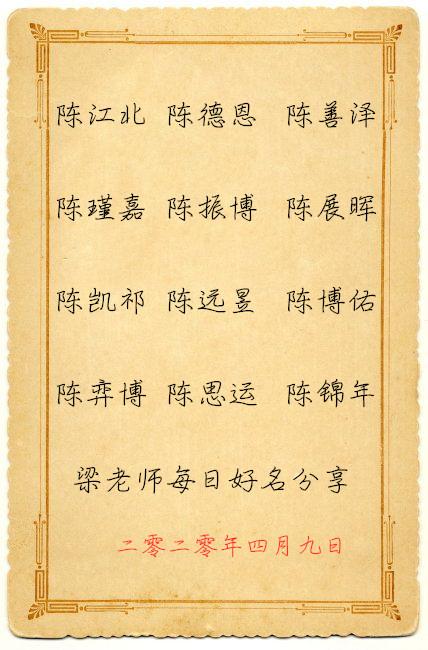 陈江北 陈德恩 陈善泽
陈瑾嘉 陈振博 陈展晖
陈凯祁 陈远昱 陈博佑
陈弈博 陈思运 陈锦年
梁老师每日好名分享
二零二零年四月九日